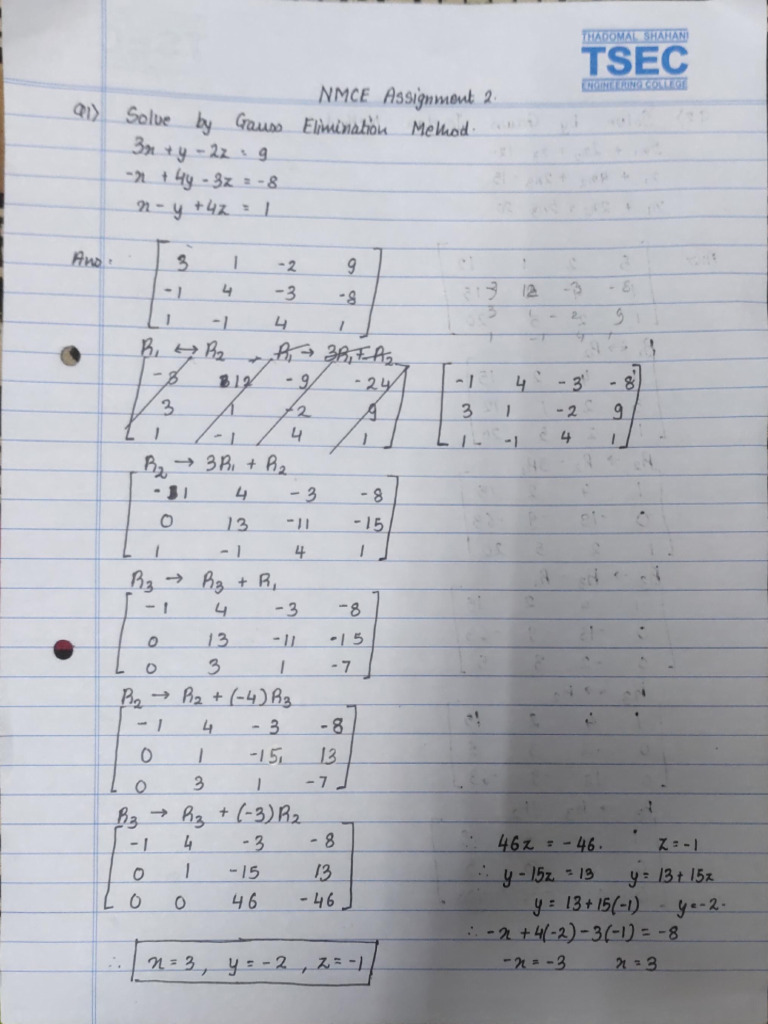 THADOMAL SHAHANI
TSEC
ENGINEERING COLLEGE
NMCE Assignment 2.
Q1) Solve by Gauss Elimination Method.
3x + y - 2z = 9
-x + 4y - 3z = -8
x - y + 4z = 1
Ans:
3 1 -2 9
-1 4 -3 -8
1 -1 4 1
R1 ↔ R2 , R1 → 3R1 + R2
-3 12 -9 -24
3 1 -2 9
1 -1 4 1
-1 4 -3 -8
3 1 -2 9
1 -1 4 1
R2 → 3R1 + R2
-1 4 -3 -8
0 13 -11 -15
1 -1 4 1
R3 → R3 + R1
-1 4 -3 -8
0 13 -11 -15
0 3 1 -7
R2 → R2 + (-4)R3
-1 4 -3 -8
0 1 -15 13
0 3 1 -7
R3 → R3 + (-3)R2
-1 4 -3 -8
0 1 -15 13
0 0 46 -46
∴ 46z = -46. z = -1
∴ y - 15z = 13 y = 13 + 15z
y = 13 + 15(-1) y = -2.
∴ -x + 4(-2) - 3(-1) = -8
-x = -3 x = 3
∴ x = 3, y = -2, z = -1